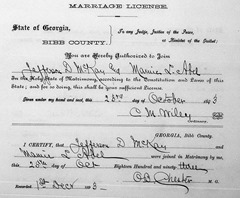 MARRIAGE LICENSE.
State of Georgia,
BIBB COUNTY.
To any Judge, Justice of the Peace,
or Minister of the Gospel:
You are Hereby Authorized to Join
Jefferson D McKay & Mamie L. Abel
In the Holy State of Matrimony according to the Constitution and Laws of this
State; and for so doing, this shall be your sufficient License.
Given under my hand and seal, this 23rd day of October 1893
C. M. Wiley
GEORGIA, Bibb County.
I CERTIFY, that Jefferson D McKay and
Mamie L Abel were joined in Matrimony by me,
this day of Oct Eighteen Hundred and ninety three
Chester M. G.
Recorded 1st Decr 3